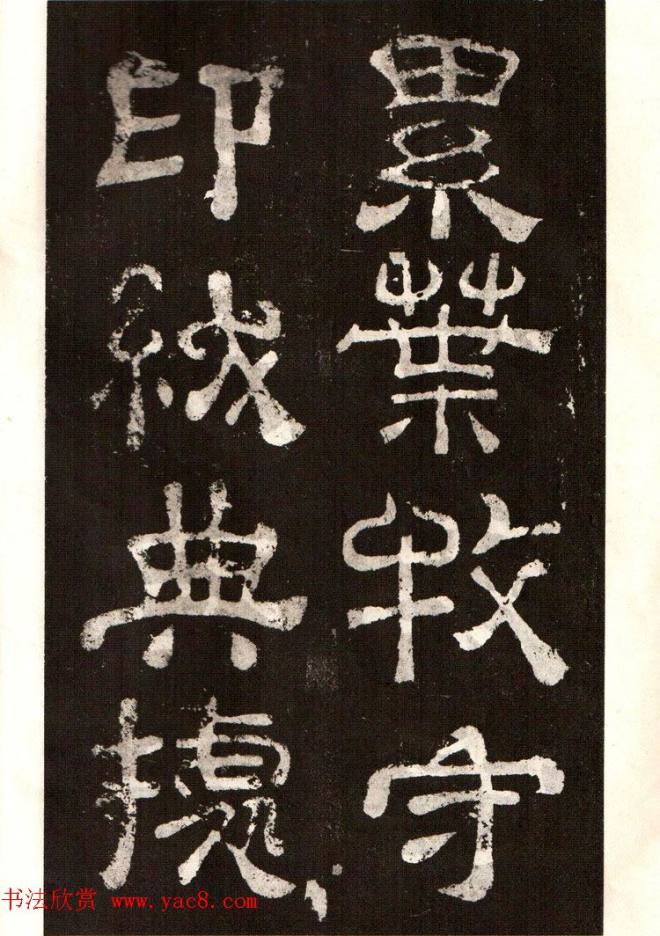 累葉牧守
印紱典據
书法欣赏 www.yac8.com